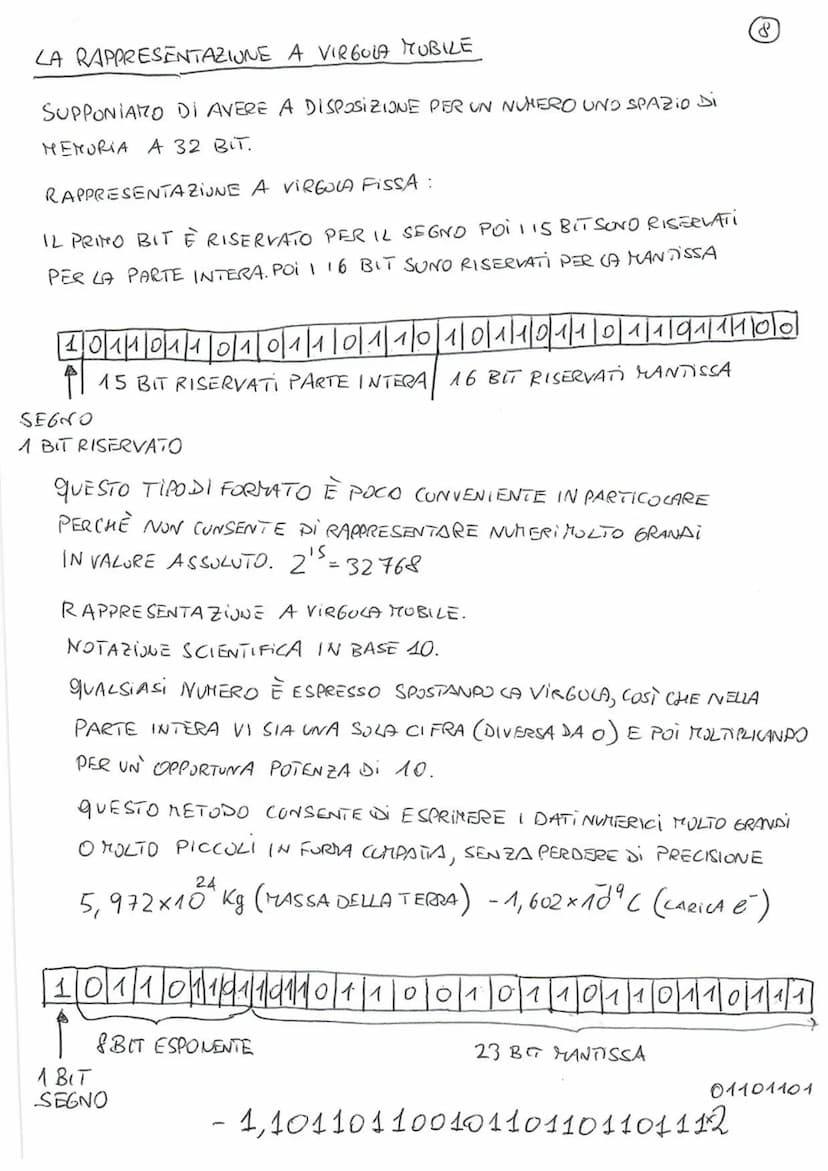 8
LA RAPPRESENTAZIONE A VIRGOLA MOBILE
SUPPONIAMO DI AVERE A DISPOSIZIONE PER UN NUMERO UNO SPAZIO DI
MEMORIA A 32 BIT.
RAPPRESENTAZIONE A VIRGOLA FISSA :
IL PRIMO BIT È RISERVATO PER IL SEGNO POI I 15 BIT SONO RISERVATI
PER LA PARTE INTERA. POI I 16 BIT SONO RISERVATI PER LA MANTISSA
1 0 1 1 0 1 1 0 1 0 1 1 0 1 1 0 1 0 1 1 0 1 1 0 1 1 0 1 1 1 0 0
15 BIT RISERVATI PARTE INTERA 16 BIT RISERVATI MANTISSA
SEGNO
1 BIT RISERVATO
QUESTO TIPO DI FORMATO È POCO CONVENIENTE IN PARTICOLARE
PERCHÈ NON CONSENTE DI RAPPRESENTARE NUMERI MOLTO GRANDI
IN VALORE ASSOLUTO. 2¹⁵ = 32768
RAPPRESENTAZIONE A VIRGOLA MOBILE.
NOTAZIONE SCIENTIFICA IN BASE 10.
QUALSIASI NUMERO È ESPRESSO SPOSTANDO LA VIRGOLA, COSÌ CHE NELLA
PARTE INTERA VI SIA UNA SOLA CIFRA (DIVERSA DA 0) E POI MOLTIPLICANDO
PER UN' OPPORTUNA POTENZA DI 10.
QUESTO METODO CONSENTE DI ESPRIMERE I DATI NUMERICI MOLTO GRANDI
O MOLTO PICCOLI IN FORMA COMPATTA, SENZA PERDERE DI PRECISIONE
5,972×10²⁴ Kg (MASSA DELLA TERRA) -1,602×10⁻¹⁹ C (CARICA e⁻)
1 0 1 1 0 1 1 0 1 1 0 1 1 0 1 1 0 0 1 0 1 1 0 1 1 0 1 1 0 1 1 1
8 BIT ESPONENTE 23 BIT MANTISSA
1 BIT
SEGNO
01101101
- 1,10110110010110110110111 2